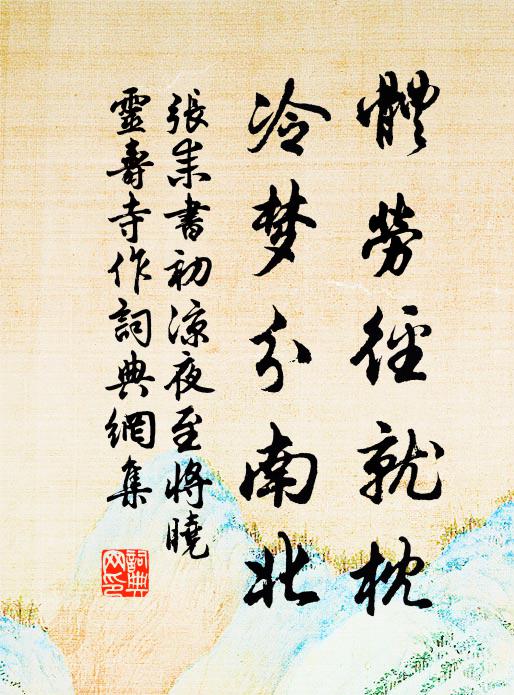 體勞徑就枕
冷梦分南北
張耒書初凉夜至將曉
靈壽寺作詞典網集
詞典
网印